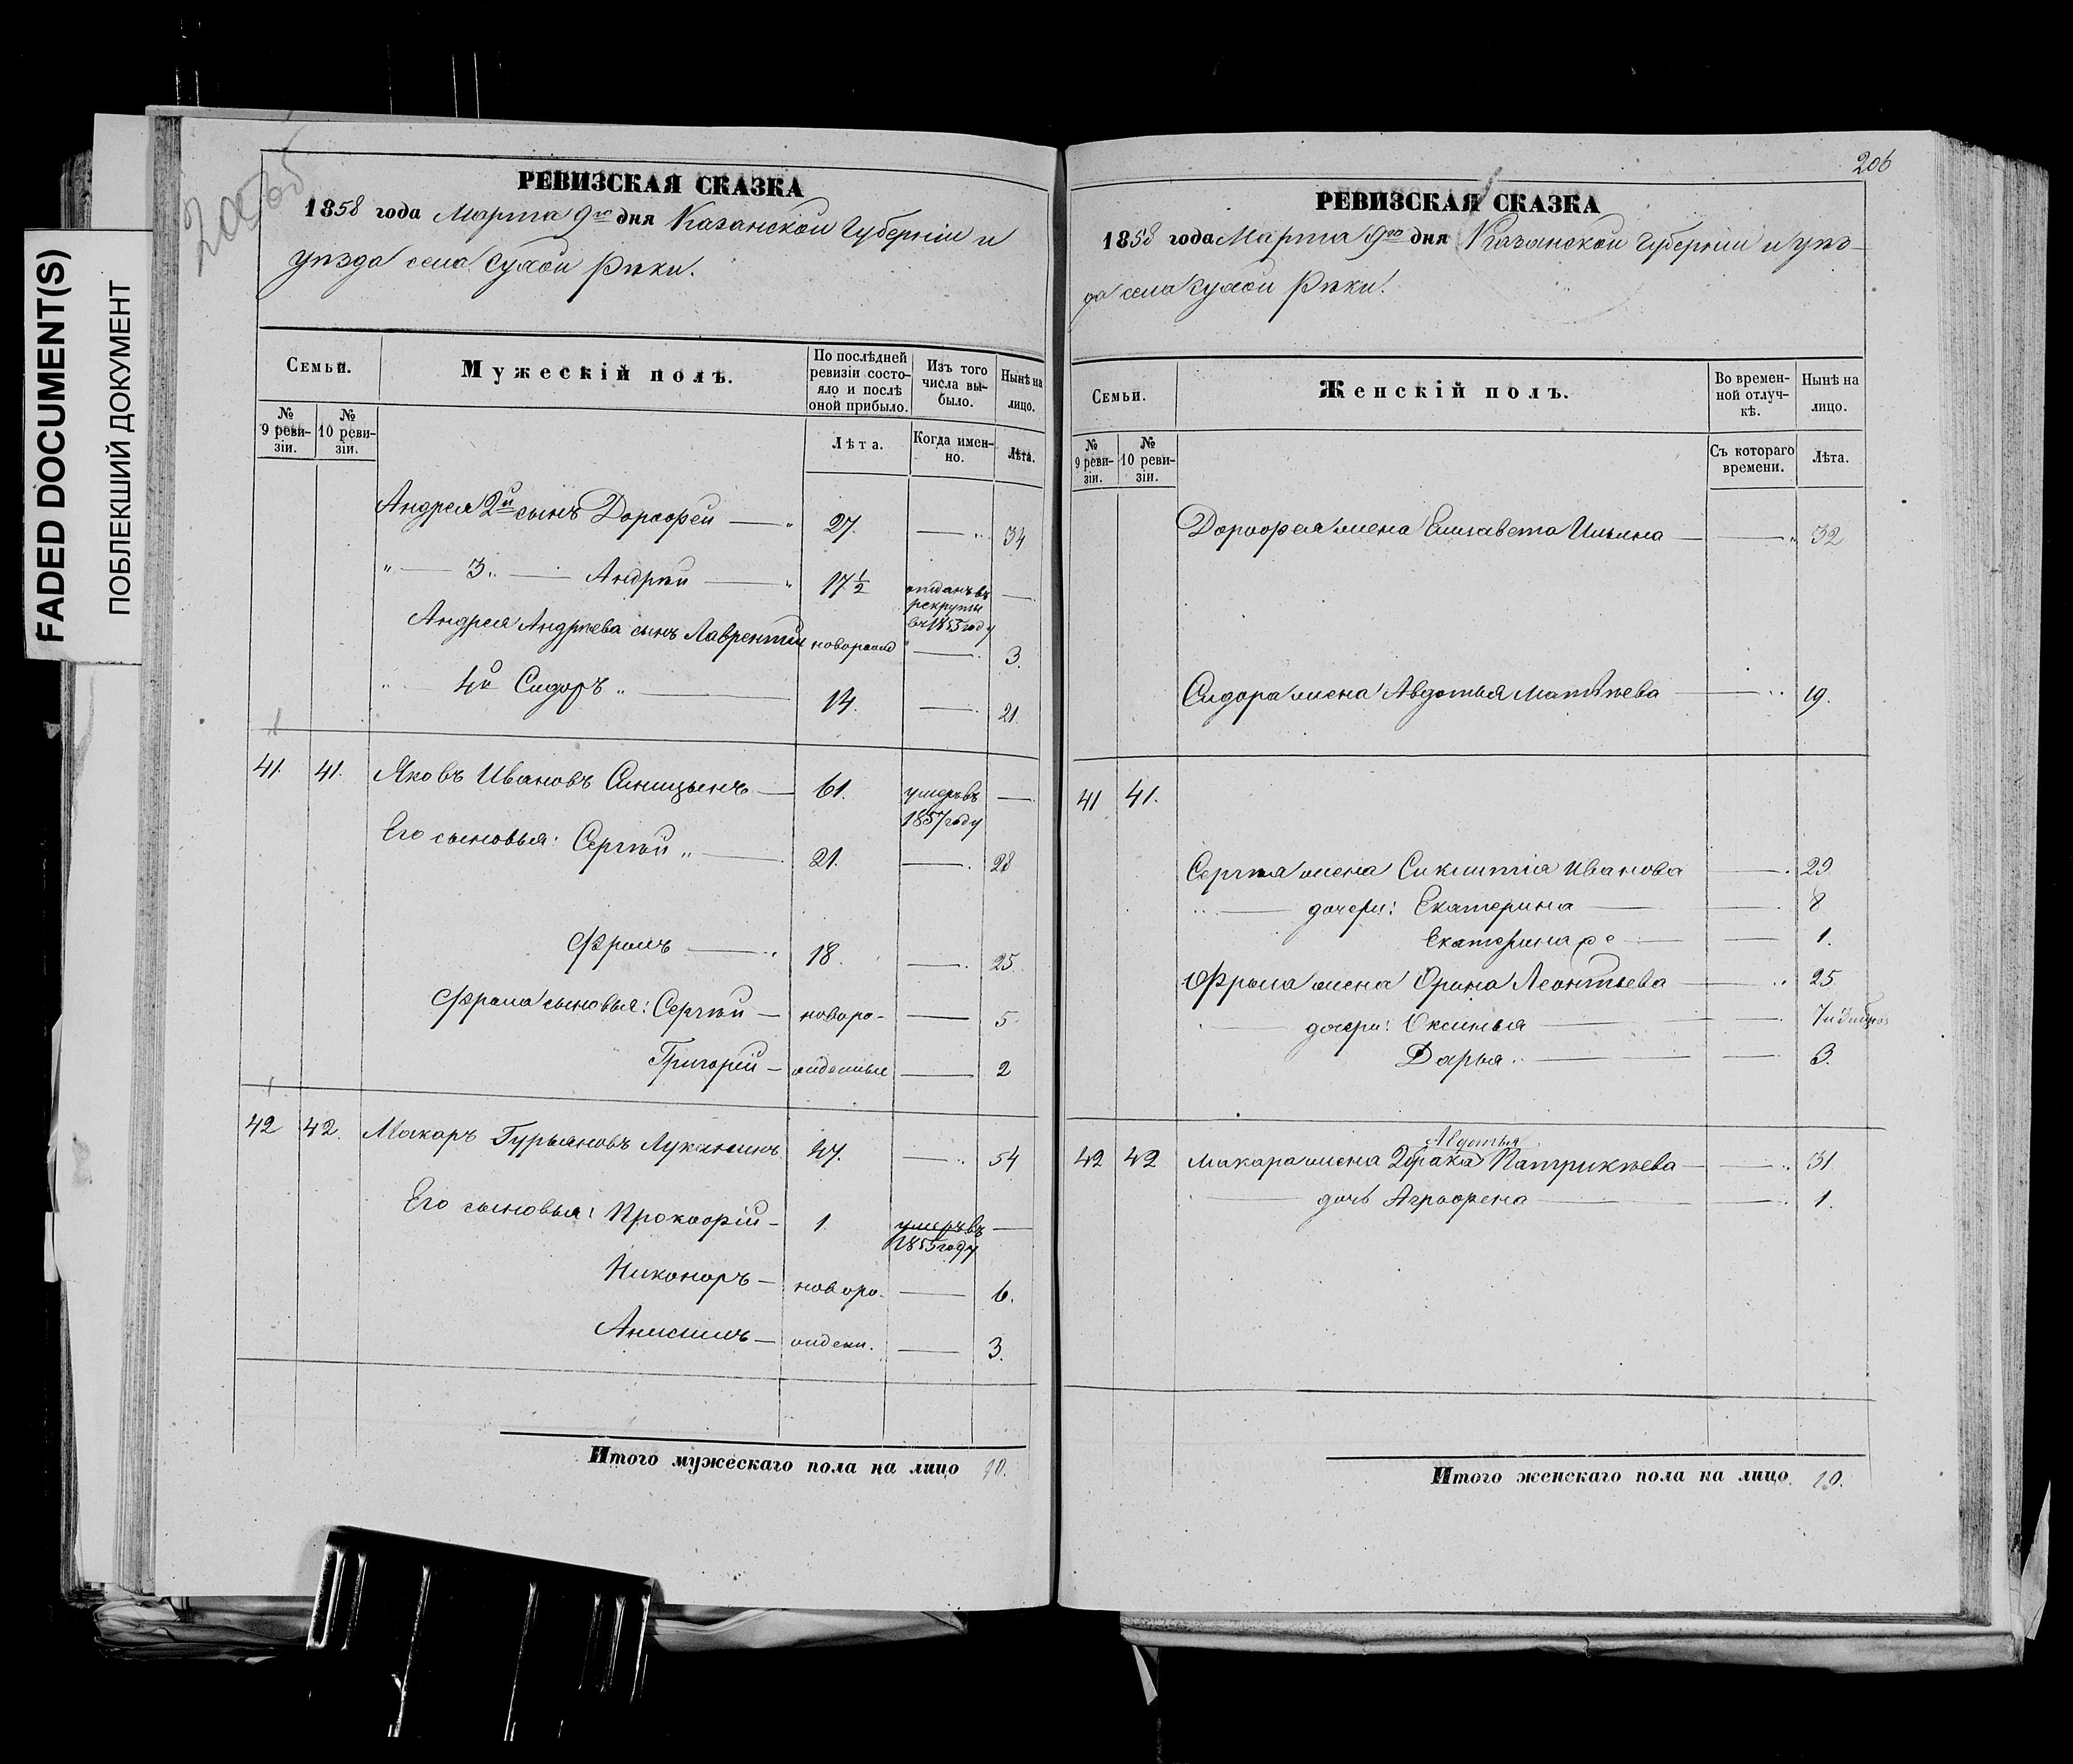 FADED DOCUMENT(S)
ПОБЛЕКШИЙ ДОКУМЕНТ
РЕВИЗСКАЯ СКАЗКА
1858 года Марта 9го дня Казанской Губерніи и
уѣзда села Сухой Рѣки.
Семьи.
Мужескій полъ.
По послѣдней ревизіи состояло и послѣ оной прибыло.
Изъ того числа выбыло.
Нынѣ на лицо.
№ 9 ревизіи.
№ 10 ревизіи.
Лѣта.
Когда именно.
Лѣта.
Андрея 2й сынъ Дорофей — 27. — 34
" — 3. — Андрей — 17½ отданъ въ рекруты въ 1855 году —
Андрея Андреева сынъ Лаврентій новорожд — 3.
" — 4й Сидоръ " — 14. — 21.
41. 41. Яковъ Ивановъ Синицынъ — 61. умеръ въ 1857 году —
Его сыновья: Сергѣй " — 21. — 28
Фролъ — 18. — 25.
Фрола сыновья: Сергѣй — новоро- — 5
Григорій — жденные — 2
42 42. Макаръ Гурьяновъ Луканинъ 47. — 54
Его сыновья: Прокофій — 1. умеръ въ 1855 году —
Никоноръ — новоро- — 6.
Анисимъ — жденн. — 3.
Итого мужескаго пола на лицо 10.
206
РЕВИЗСКАЯ СКАЗКА
1858 года Марта 9го дня Казанской Губерніи и уѣз-
да села Сухой Рѣки.
Семьи.
Женскій полъ.
Во временной отлучкѣ.
Нынѣ на лицо.
№ 9 ревизіи.
№ 10 ревизіи.
Съ котораго времени.
Лѣта.
Дорофея жена Елизавета Ильина — — 32
Сидора жена Авдотья Матвѣева — — 19.
41 41.
Сергѣя жена Сиклитія Иванова — 29
" — дочери: Екатерина — — 8
Екатерина — — 1.
Фрола жена Орина Леонтьева — — 25
дочери: Оксинья — — 7
Дарья — — 3.
42 42 Макара жена 2 брака Авдотья Патрикѣева — — 31
дочь Аграфена — — 1.
Итого женскаго пола на лицо 10.